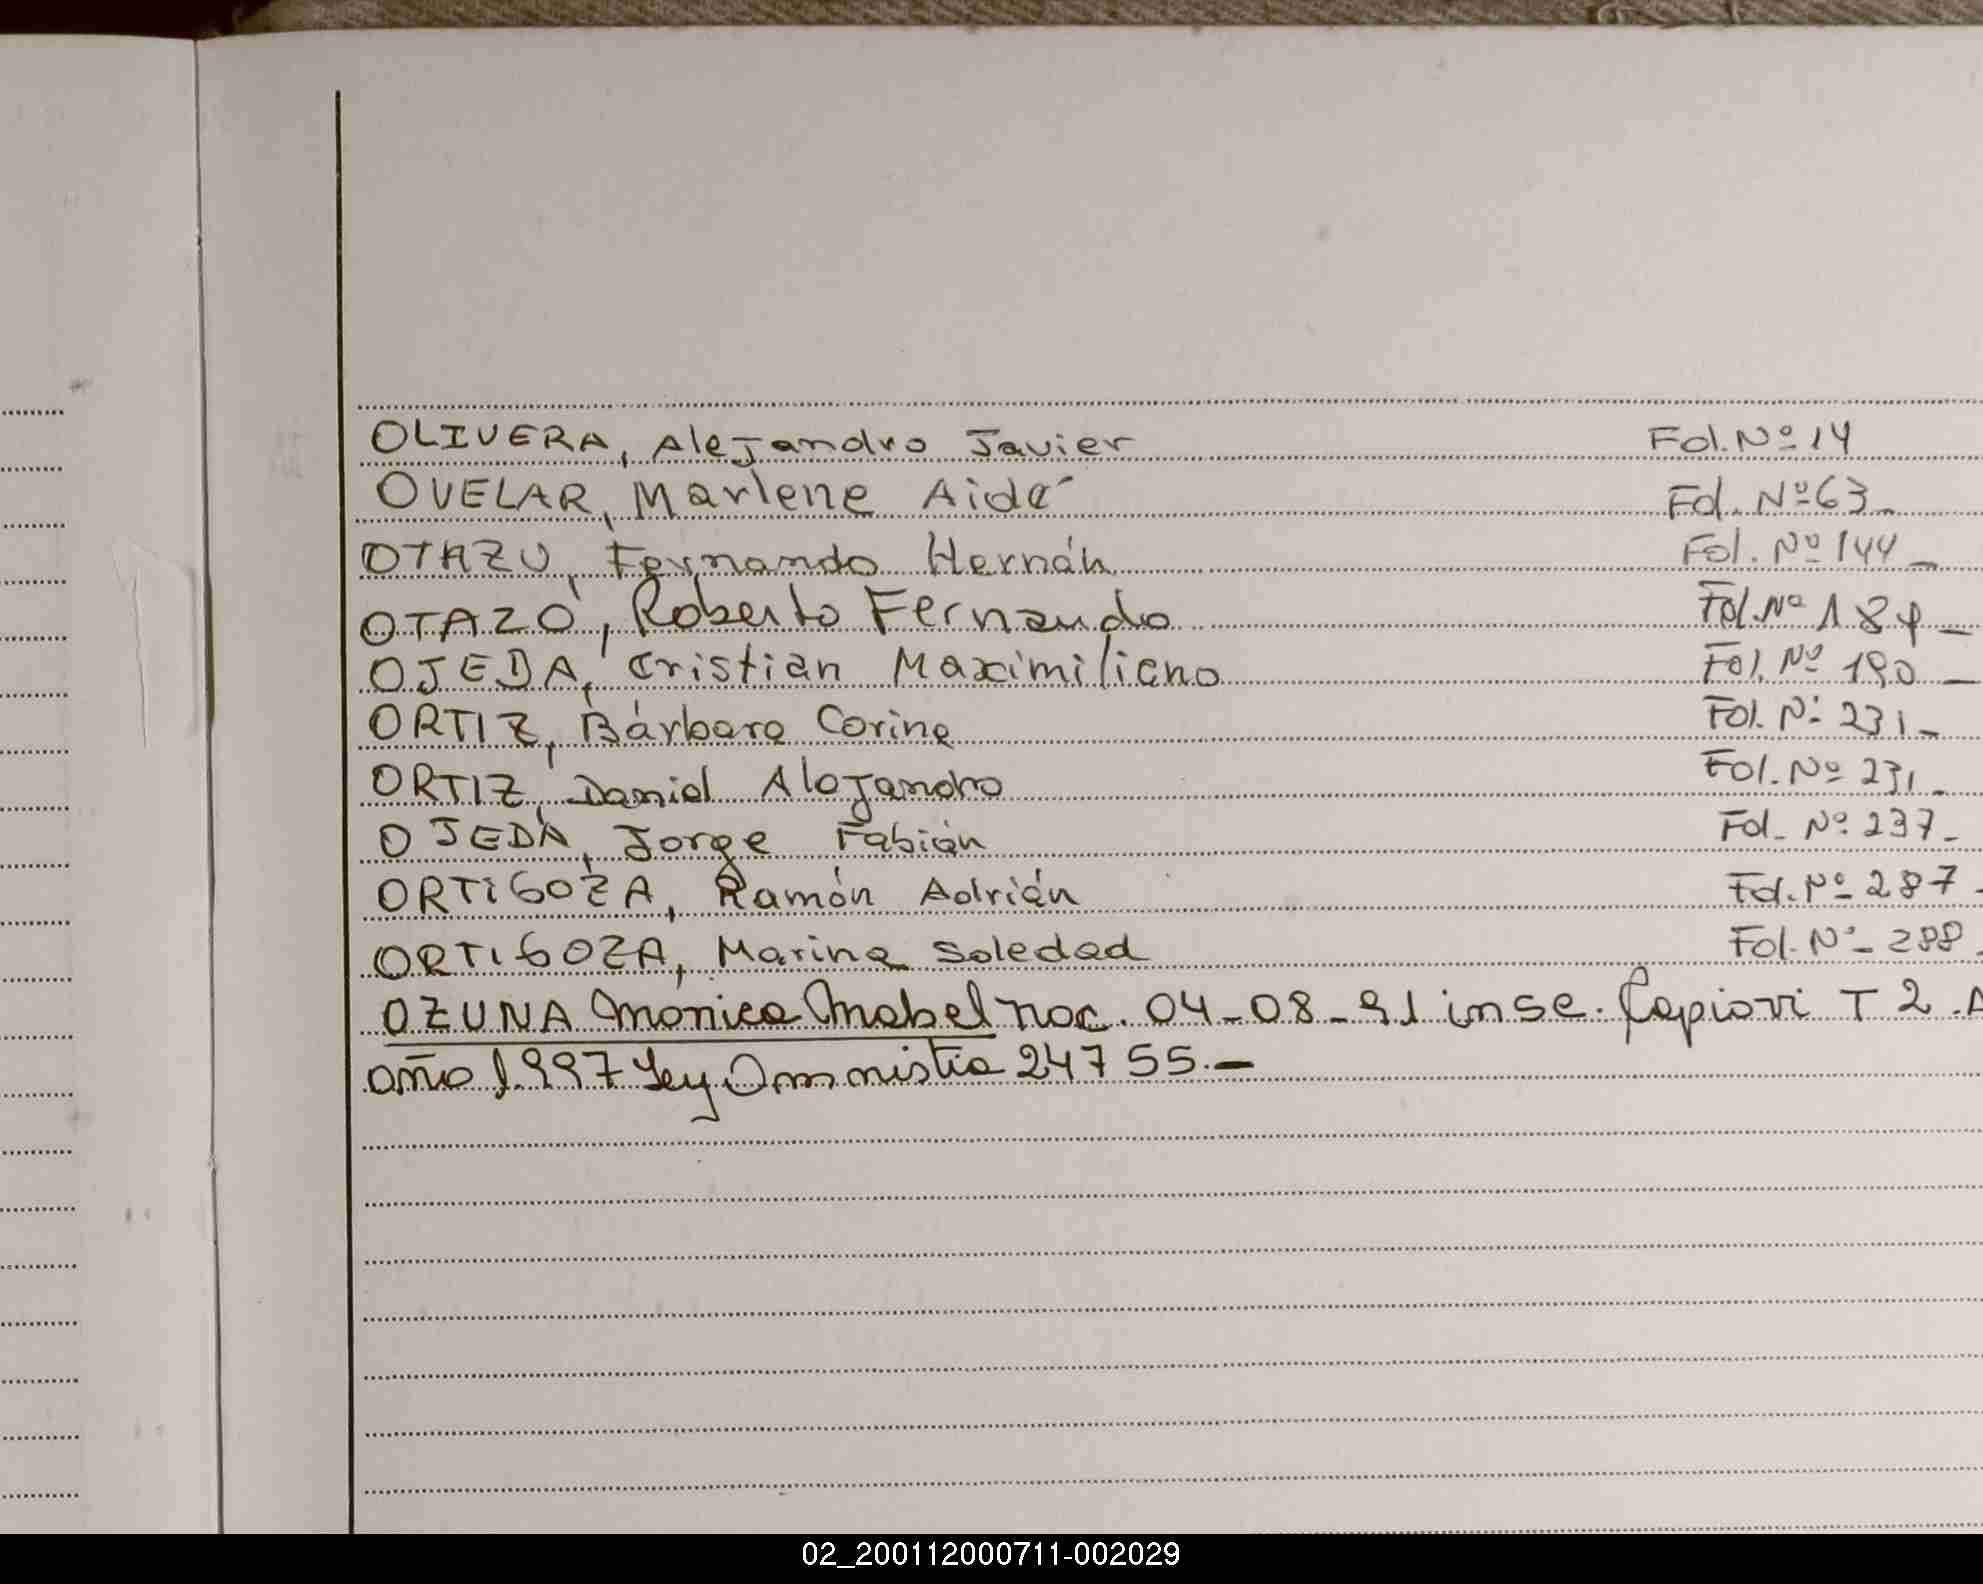 OLIVERA, Alejandro Javier Fol. Nº 14
OVELAR, Marlene Aidé Fol. Nº 63_
OTAZU, Fernando Hernán Fol. Nº 144_
OTAZO, Roberto Fernando Fol. Nº 184_
OJEDA, Cristian Maximiliano Fol. Nº 190_
ORTIZ, Bárbara Corina Fol. Nº 231_
ORTIZ, Daniel Alejandro Fol. Nº 231_
OJEDA, Jorge Fabián Fol. Nº 237_
ORTIGOZA, Ramón Adrián Fol. Nº 287_
ORTIGOZA, Marina Soledad Fol. Nº 288_
OZUNA Monica Mabel nac. 04_08_91 insc. Capiovi T 2. A
año 1997 Ley Omnistia 24755._
02_200112000711-002029